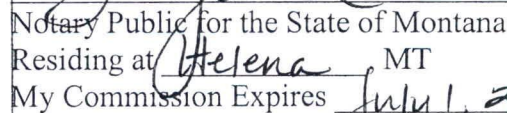 Notary Public for the State of Montana
Residing at Helena, MT
My Commission Expires July 1, 2